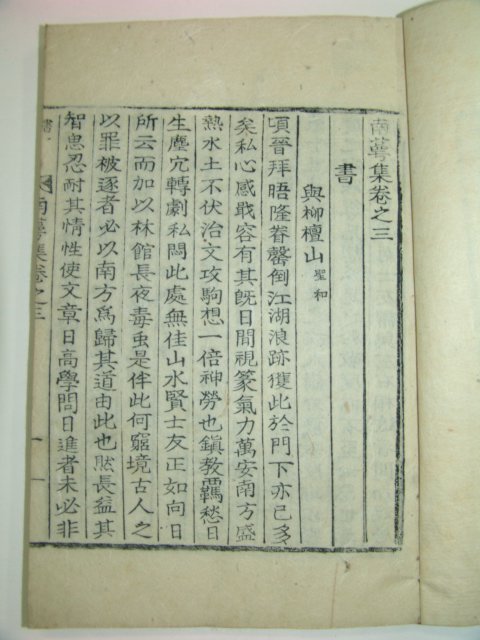 南蕚集卷之三
書
與柳檀山聖和
項晉拜晤隆眷罄倒江湖浪跡獲此於門下亦已多
矣私心感戢容有其旣日間視篆氣力萬安南方盛
熱水土不伏治文攻駒想一倍神勞也鎭敎羈愁日
生塵宂轉劇私悶此處無佳山水賢士友正如向日
所云而加以林館長夜毒虫是伴此何窮境古人之
以罪被逐者必以南方爲歸其道由此也然長益其
智思忍耐其情性使文章日高學問日進者未必非
書
南蕚集卷之三
一